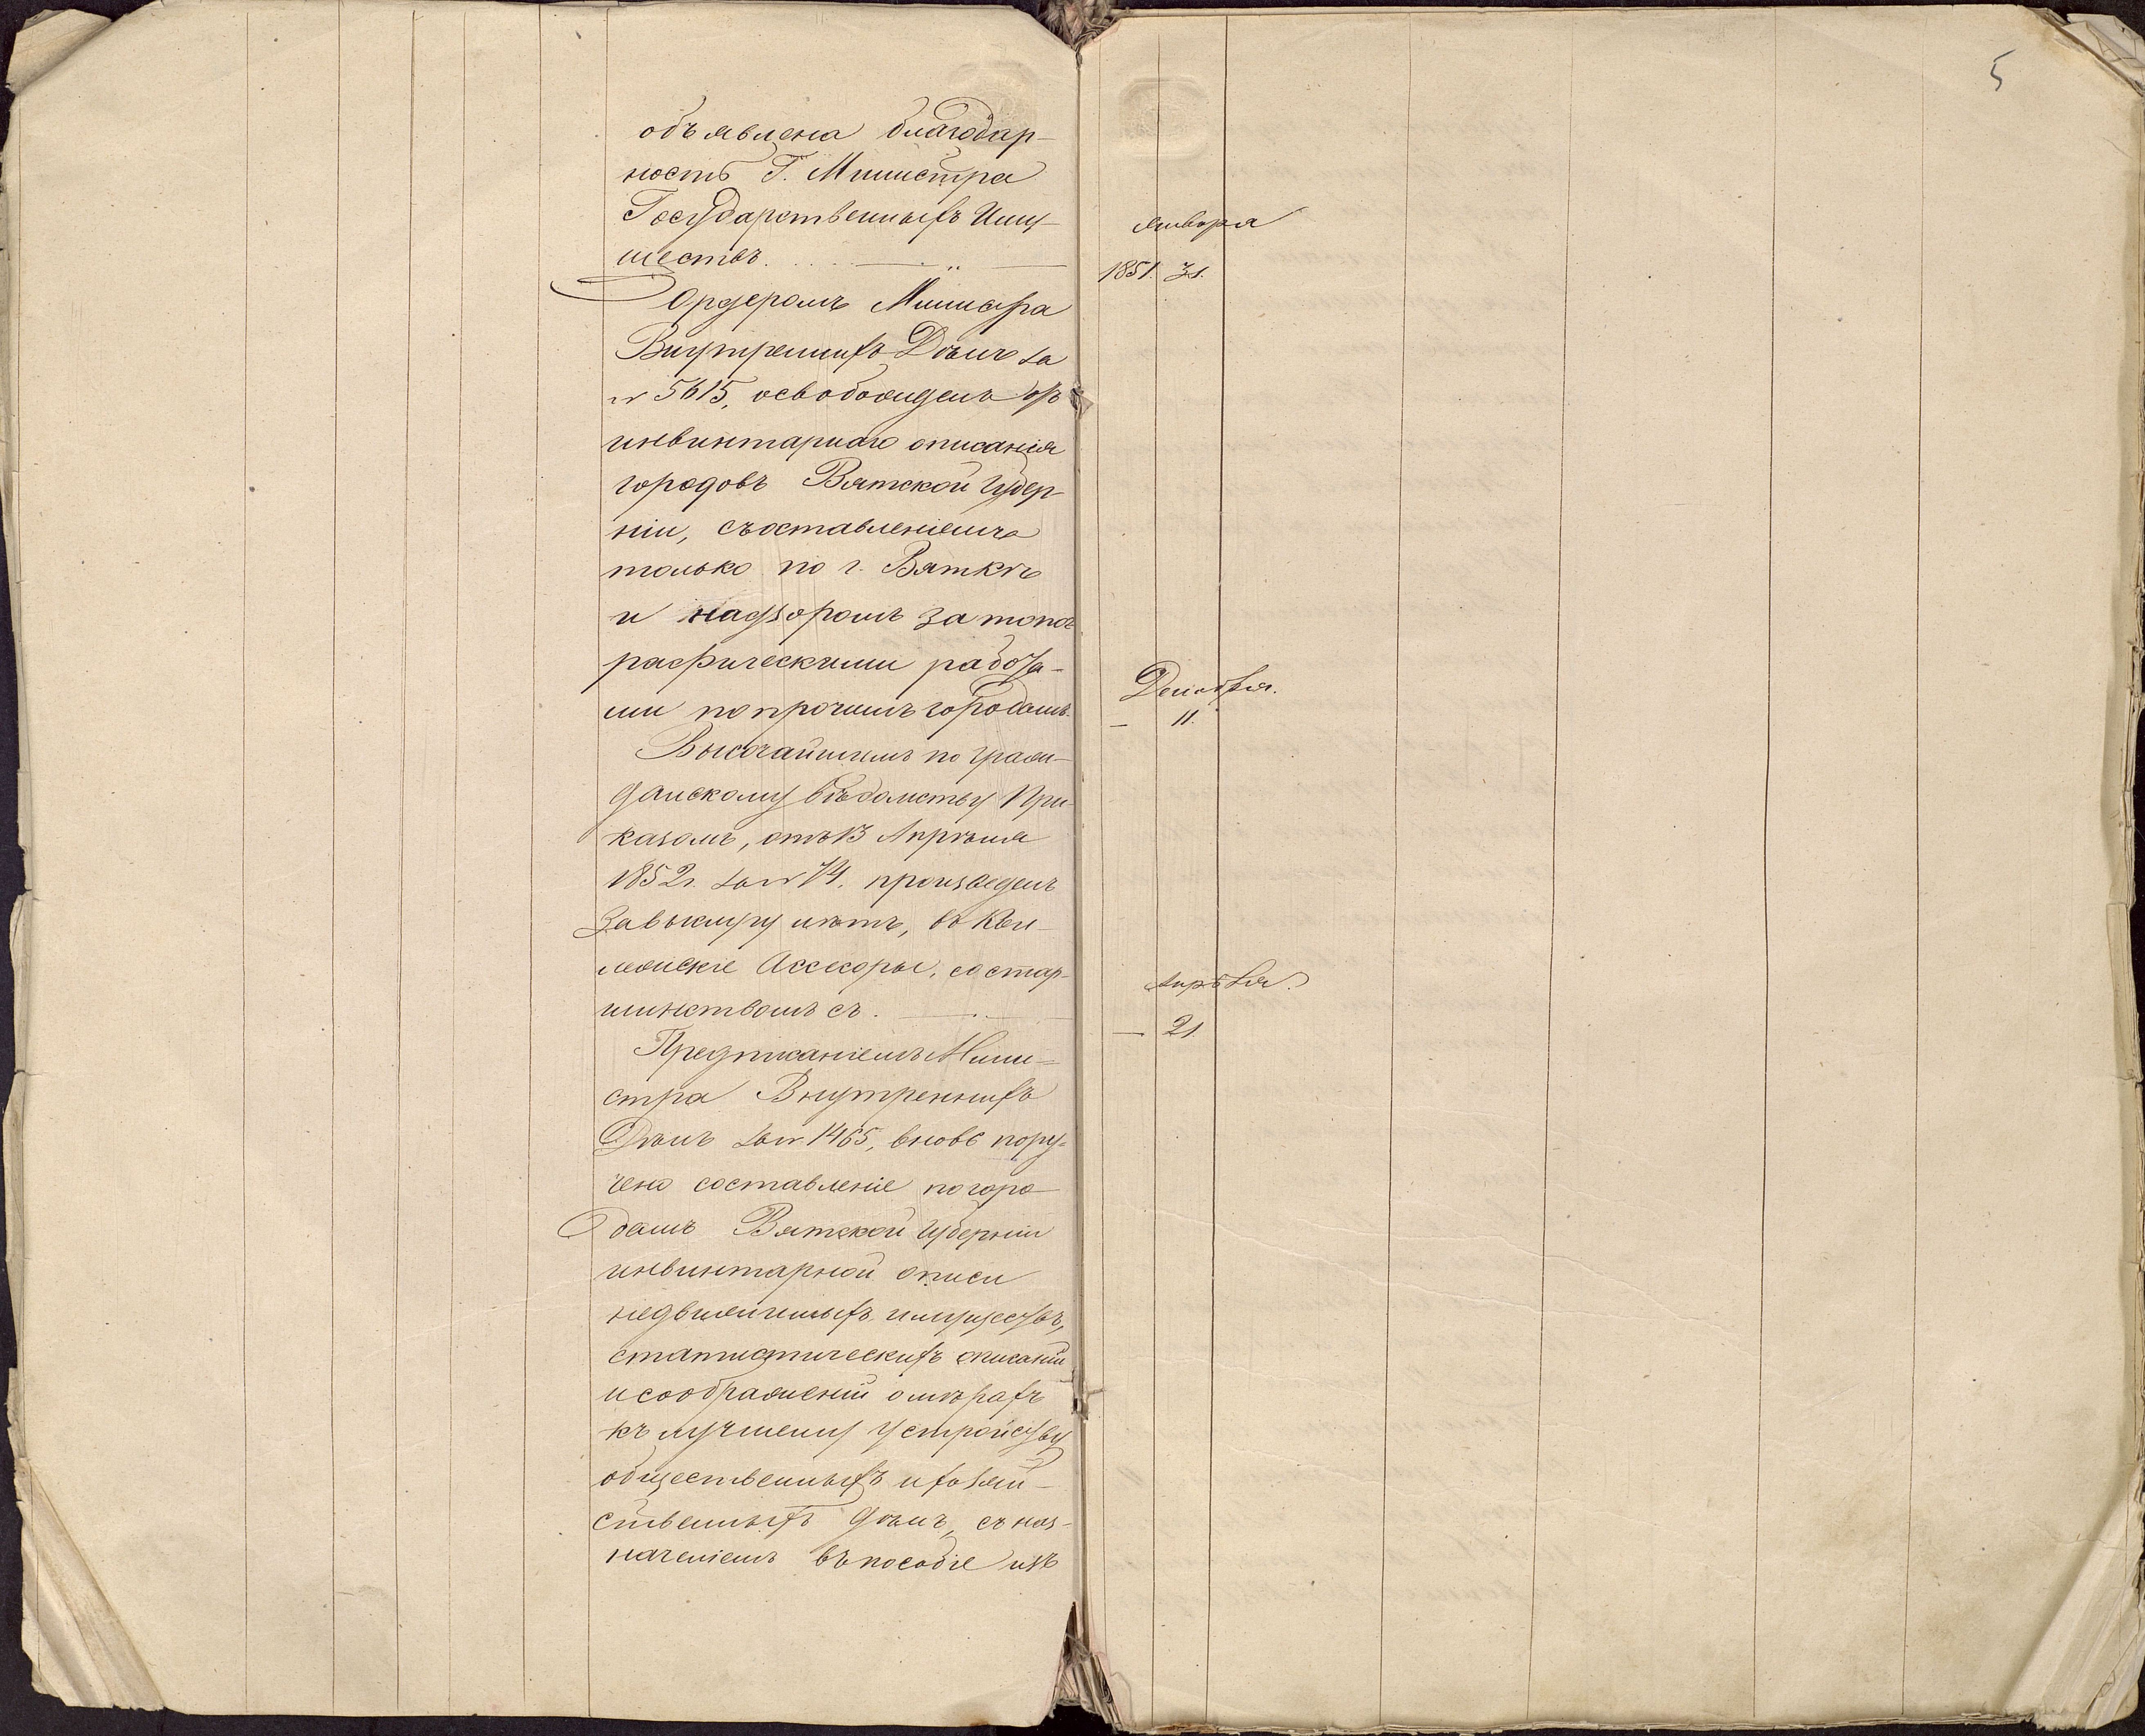 5
объявлена благодар-
ность Г. Министра
Государственныхъ Иму-
ществъ.
Января
1851. 31.
Ордеромъ Министра
Внутреннихъ Дѣлъ за
№ 5615, освобожденъ отъ
инвинтарнаго описанія
городовъ Вятской Губер-
ніи, съоставленіемъ
только по г. Вяткѣ
и надзоромъ за топог
рафическими работа-
ми по прочимъ городамъ.
Декабря.
— 11.
Высочайшимъ по граж-
данскому вѣдомству При-
казомъ, отъ 13 Апрѣля
1852 г. за № 74. произведенъ
за выслугу лѣтъ, въ Кол-
лежскіе Ассесоры, со стар-
шинствомъ съ.
Апрѣля.
— 21.
Предписаніемъ Мини-
стра Внутреннихъ
Дѣлъ за № 1465, вновь пору-
чено составленіе по горо-
дамъ Вятской Губерніи
инвинтарной описи
недвижимыхъ имуществъ,
статистическихъ описаній
и соображеній о мѣрахъ
къ лучшему устройству
общественныхъ и хозяй-
ственныхъ дѣлъ, съ наз-
наченіемъ въ пособіе изъ